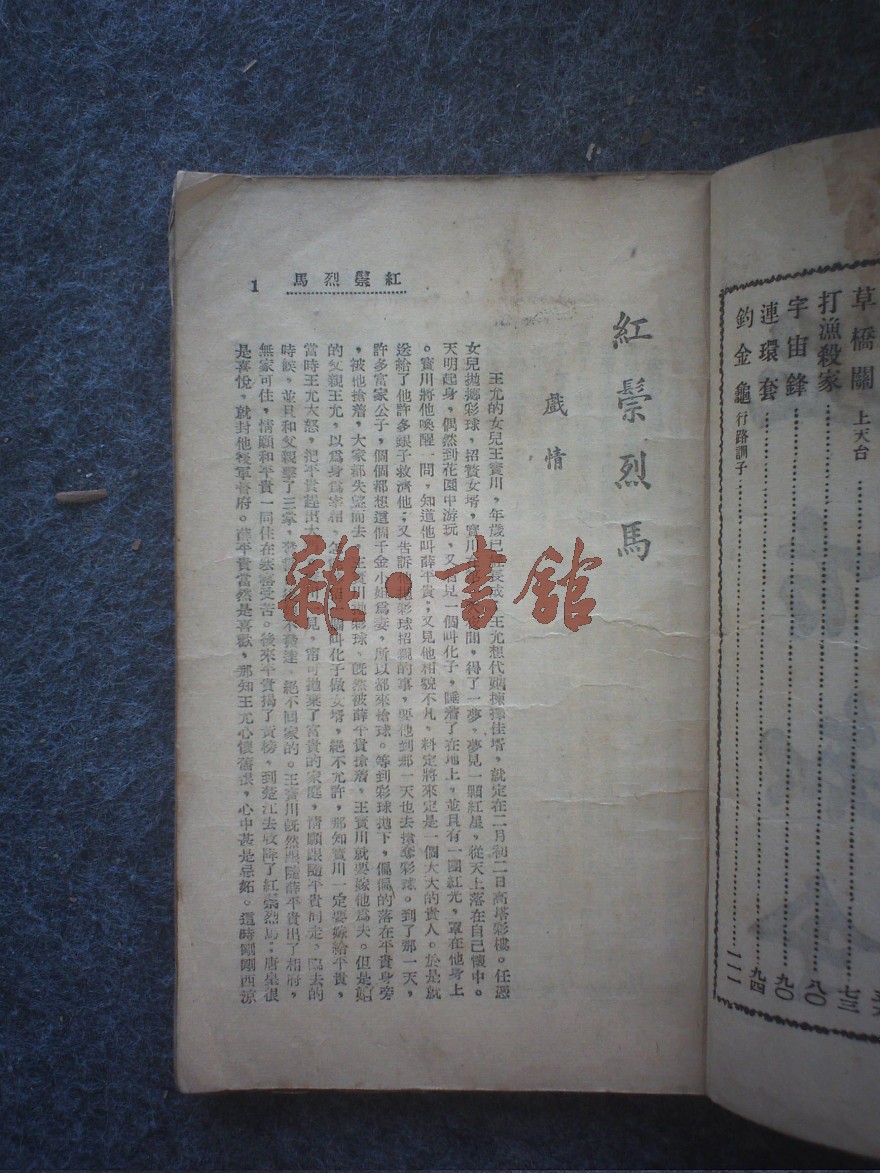 草橋關 上天台
打漁殺家 八〇
宇宙鋒 九〇
連環套 九四
釣金龜 行路訓子 一一一
七三
紅鬃烈馬
1
紅鬃烈馬
戲情
王允的女兒王寶川,年歲已 王允想代她揀擇佳壻,就定在二月初二日高塔彩樓。任憑
女兒拋擲彩球,招贅女壻,寶川 間,得了一夢,夢見一顆紅星,從天上落在自己懷中。
天明起身,偶然到花園中游玩,又 見一個叫化子,睡着了在地上,並且有一團紅光,罩在他身上
。寶川將他喚醒一問,知道他叫薛平貴;又見他相貌不凡,料定將來定是一個大大的貴人。於是就
送給了他許多銀子救濟他;又告訴 彩球招親的事,要他到那一天也去搶奪彩球。到了那一天,
許多富家公子,個個都想這個千金小姐爲妻,所以都來搶球。等到彩球拋下,偏偏的落在平貴身旁
,被他搶着,大家都失望而去。王寶川 彩球,旣然被薛平貴搶着,王寶川就要嫁他爲夫。但是她
的父親王允,以爲身爲宰相, 叫化子做女壻,絕不允許,那知寶川一定要嫁給平貴,
當時王允大怒,把平貴趕出大 見,甯可拋棄了富貴的家庭,情願跟隨平貴同走。臨去的
時候,並且和父親擊了三掌, 不發達,絕不回家的。王寶川旣然跟隨薛平貴出了相府,
無家可住,情願和平貴一同住在 受苦。後來平貴揭了黃榜,到楚江去收降了紅鬃烈馬;唐皇很
是喜悅,就封他後軍督府。薛平貴當然是喜歡,那知王允心懷舊恨,心中甚是忌妬。這時剛剛西涼
雜·書館